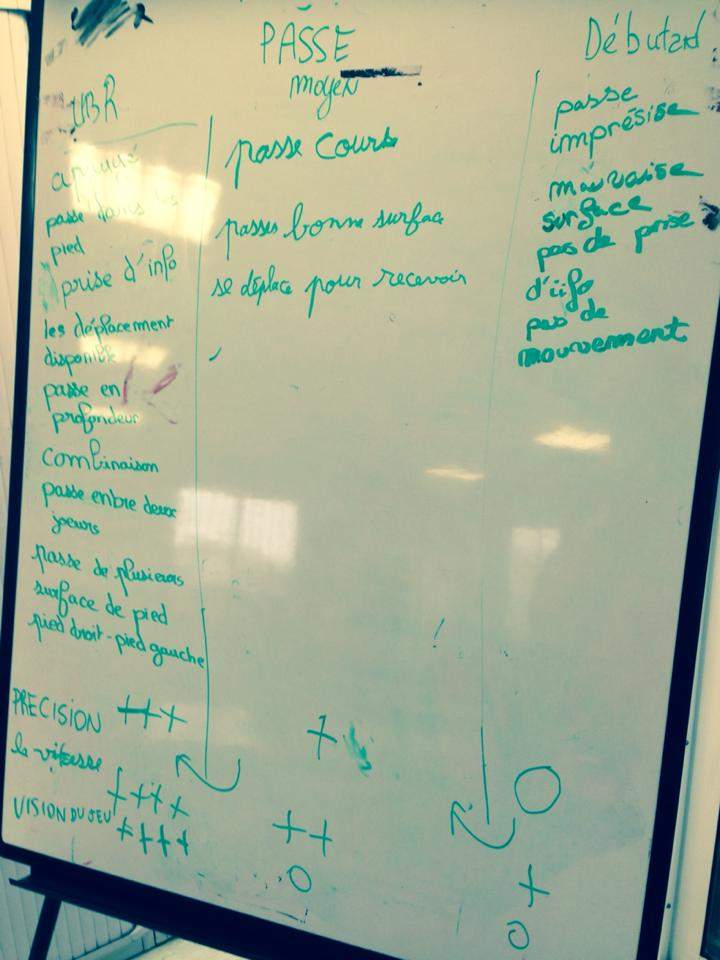 PASSE
moyen
Débutard
UBR
appuyé
passe dans les
pied
prise d'info
les déplacement
disponible
passe en
profondeur
combinaison
passe entre deux
joeurs
passe de plusieurs
surface de pied
pied droit - pied gauche
passe courte
passes bonne surface
se déplace pour recevoir
passe
imprésise
mauvaise
surface
pas de prise
d'iifo
pas de
mouvement
PRECISION +++ + O
la vitesse ++++ ++ +
VISION DU JEU ++++ O O